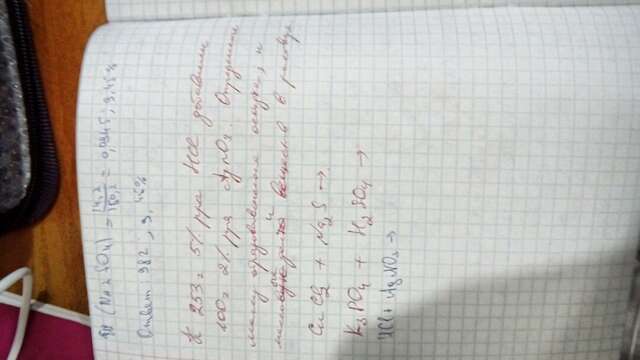 ω (Na₂SO₄) = 14,2 / 150,2 = 0,0945; 9,45%
Ответ 382; 9,
К 253г 5% р-ра HCl добавили
100г 2% р-ра AgNO₃. Определите
массу образовавшегося осадка, и
массовые доли веществ в растворе
CuCl₂ + Na₂S →
K₃PO₄ + H₂SO₄ →
HCl + AgNO₃ →